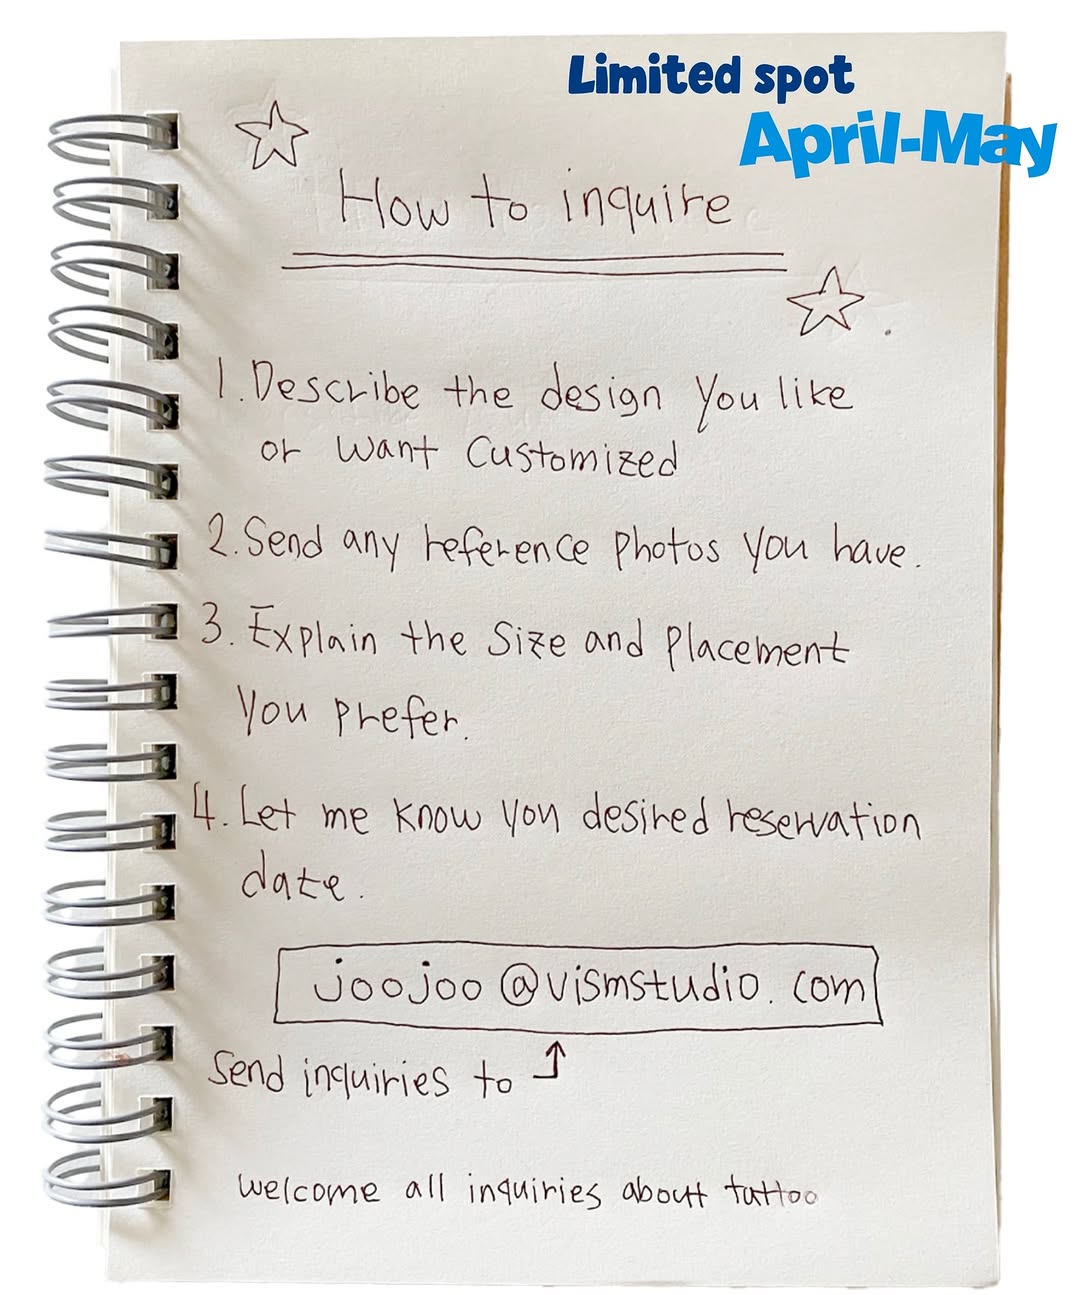 Limited spot
April-May
How to inquire
1. Describe the design you like
or want customized
2. Send any reference photos you have.
3. Explain the size and placement
you prefer.
4. Let me know you desired reservation
date.
joojoo@vismstudio.com
Send inquiries to ↑
welcome all inquiries about tattoo